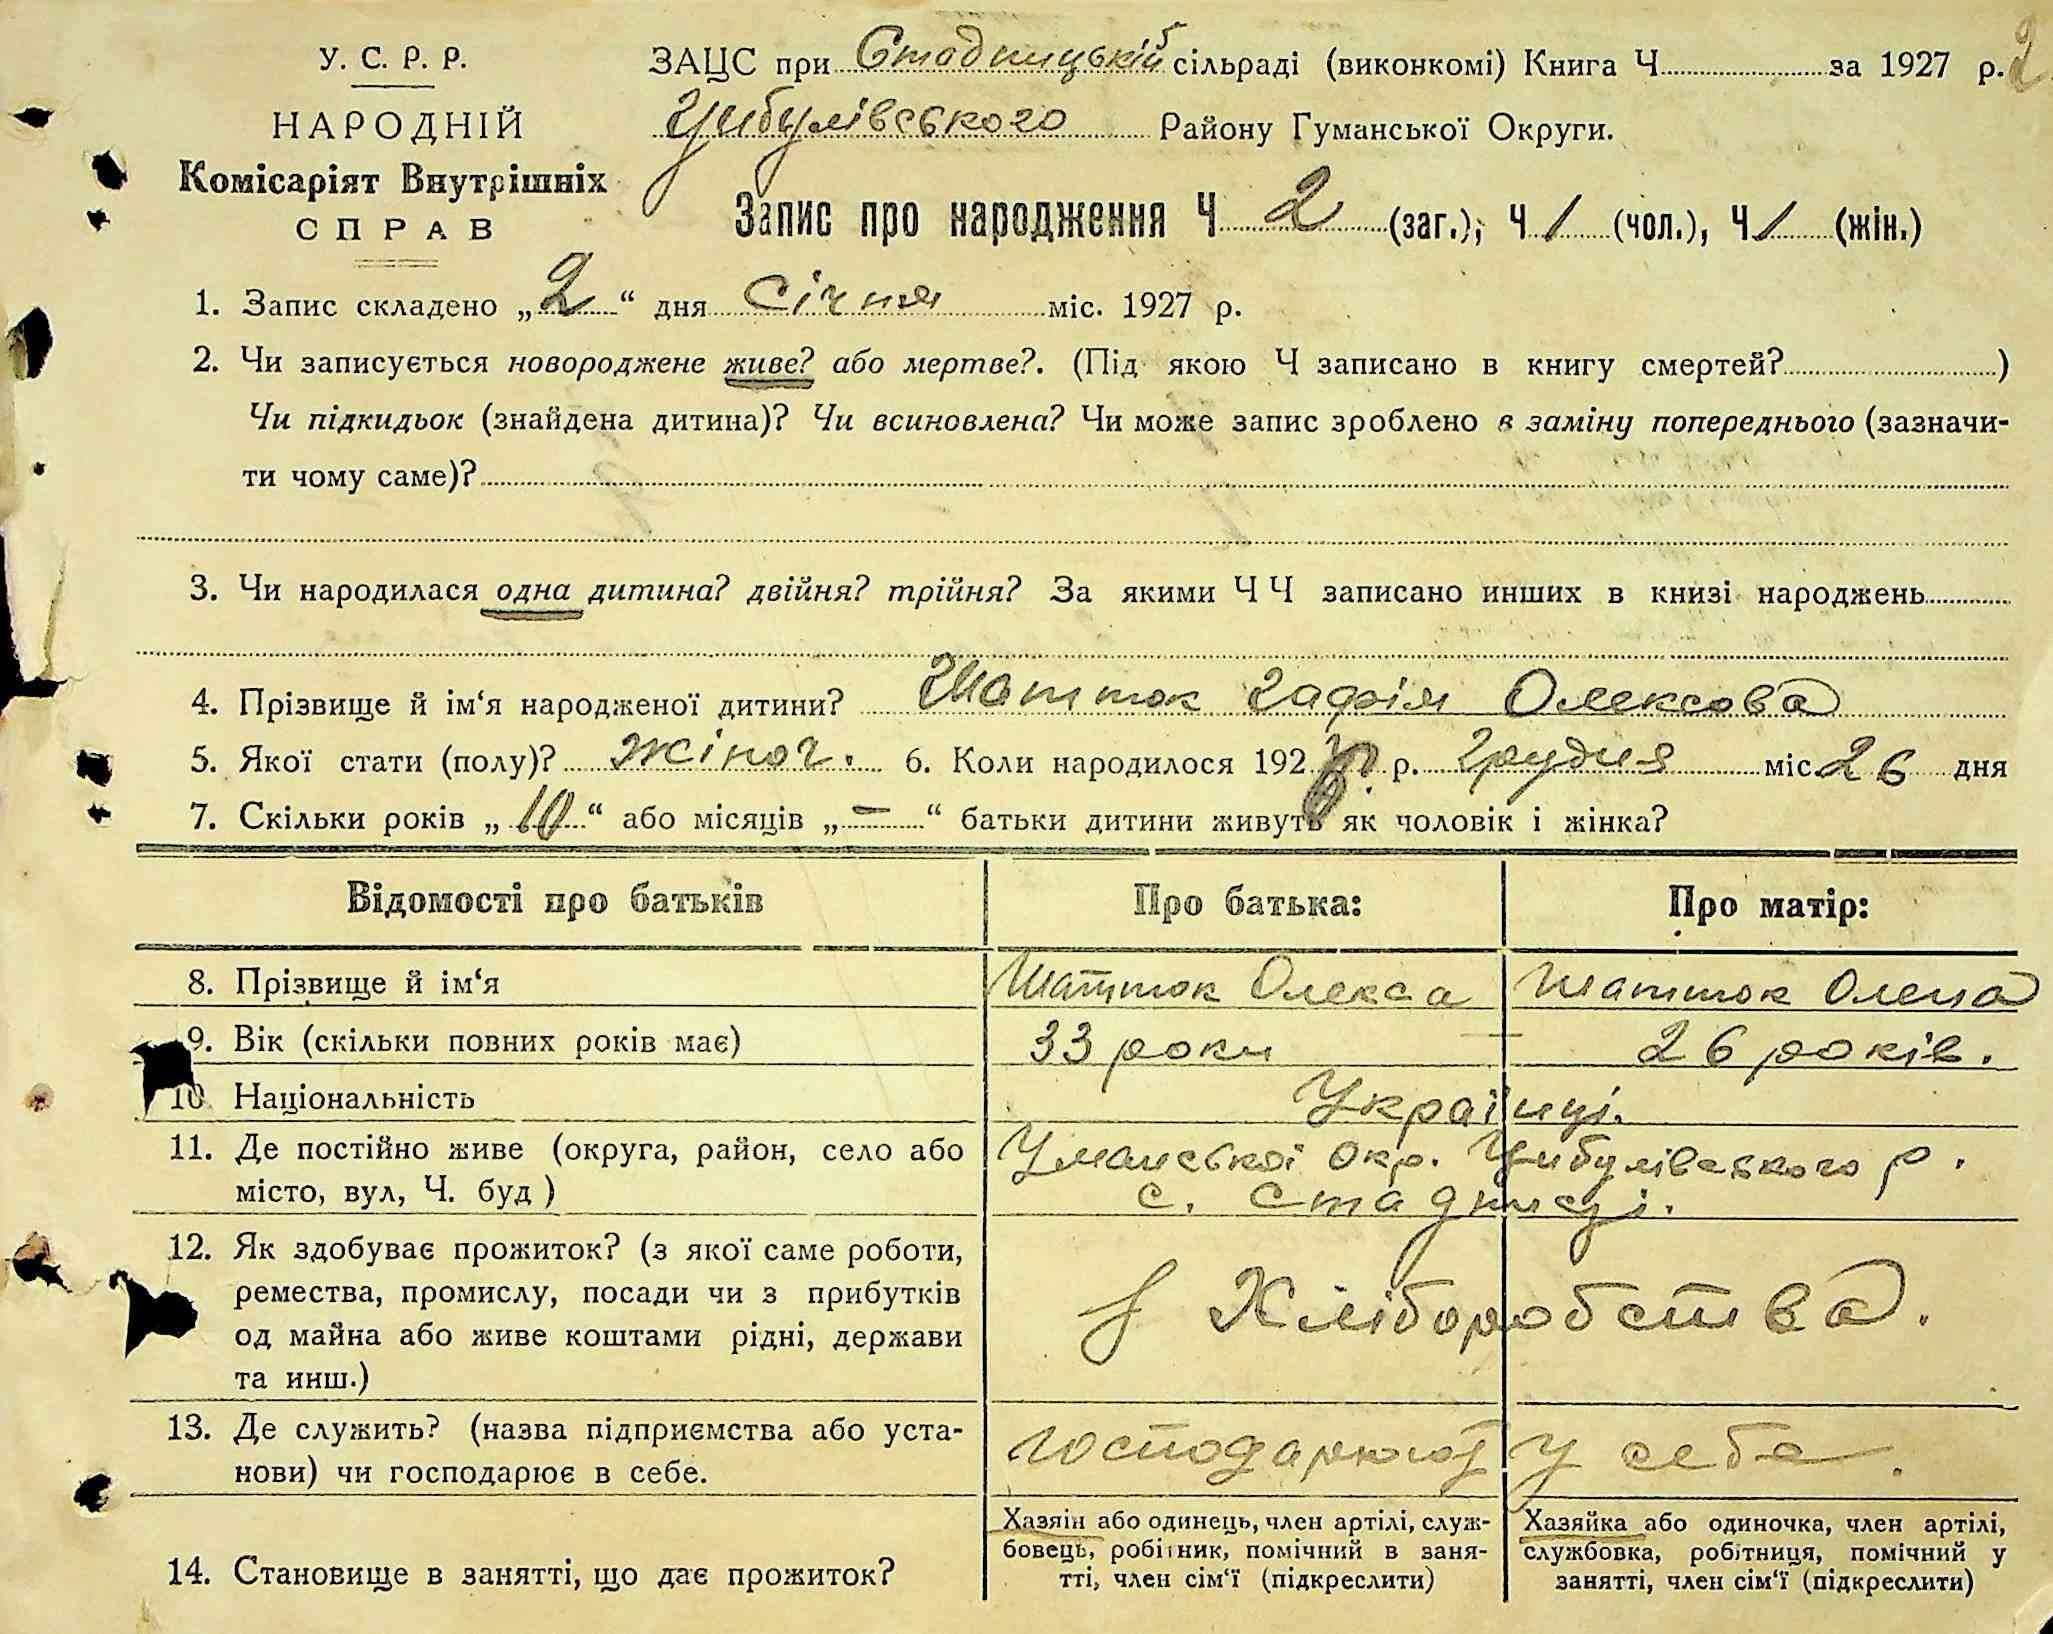 У. С. Р. Р.
НАРОДНІЙ
Комісаріят Внутрішніх
СПРАВ
ЗАЦС при Стадницькій сільраді (виконкомі) Книга Ч за 1927 р. 2
Цибулівського Району Гуманської Округи.
Запис про народження Ч 2 (заг.); Ч 1 (чол.), Ч 1 (жін.)
1. Запис складено „2“ дня Січня міс. 1927 р.
2. Чи записується новороджене живе? або мертве?. (Під якою Ч записано в книгу смертей? )
Чи підкидьок (знайдена дитина)? Чи всиновлена? Чи може запис зроблено в заміну попереднього (зазначи-
ти чому саме)?
3. Чи народилася одна дитина? двійня? трійня? За якими Ч Ч записано инших в книзі народжень
4. Прізвище й ім‘я народженої дитини? Шатток Гафія Олексова
5. Якої стати (полу)? Жіноч. 6. Коли народилося 192 р. Грудня міс. 26 дня
7. Скільки років „10“ або місяців „–“ батьки дитини живуть як чоловік і жінка?
Відомості про батьків Про батька: Про матір:
8. Прізвище й ім‘я Шатток Олекса Шатток Олена
9. Вік (скільки повних років має) 33 роки 26 років.
10 Національність Українці.
11. Де постійно живе (округа, район, село або
місто, вул, Ч. буд )
Уманської окр. Цибулівського р.
с. Стадниці.
12. Як здобуває прожиток? (з якої саме роботи,
ремества, промислу, посади чи з прибутків
од майна або живе коштами рідні, держави
та инш.)
З Хліборобства.
13. Де служить? (назва підприємства або уста-
нови) чи господарює в себе.
Господарюют у себе.
14. Становище в занятті, що дає прожиток?
Хазяін або одинець, член артілі, служ-
бовець, робітник, помічний в заня-
тті, член сім‘ї (підкреслити)
Хазяйка або одиночка, член артілі,
службовка, робітниця, помічний у
занятті, член сім‘ї (підкреслити)